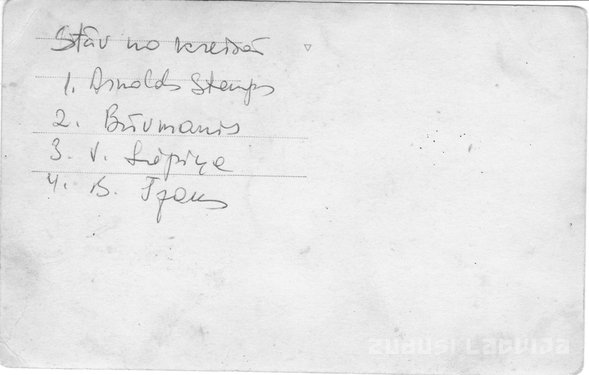 Stāv no kreisās
1. Arnolds Stemps
2. Būvmanis
3. V. Liepiņa
4. B.
Zudusī Latvija